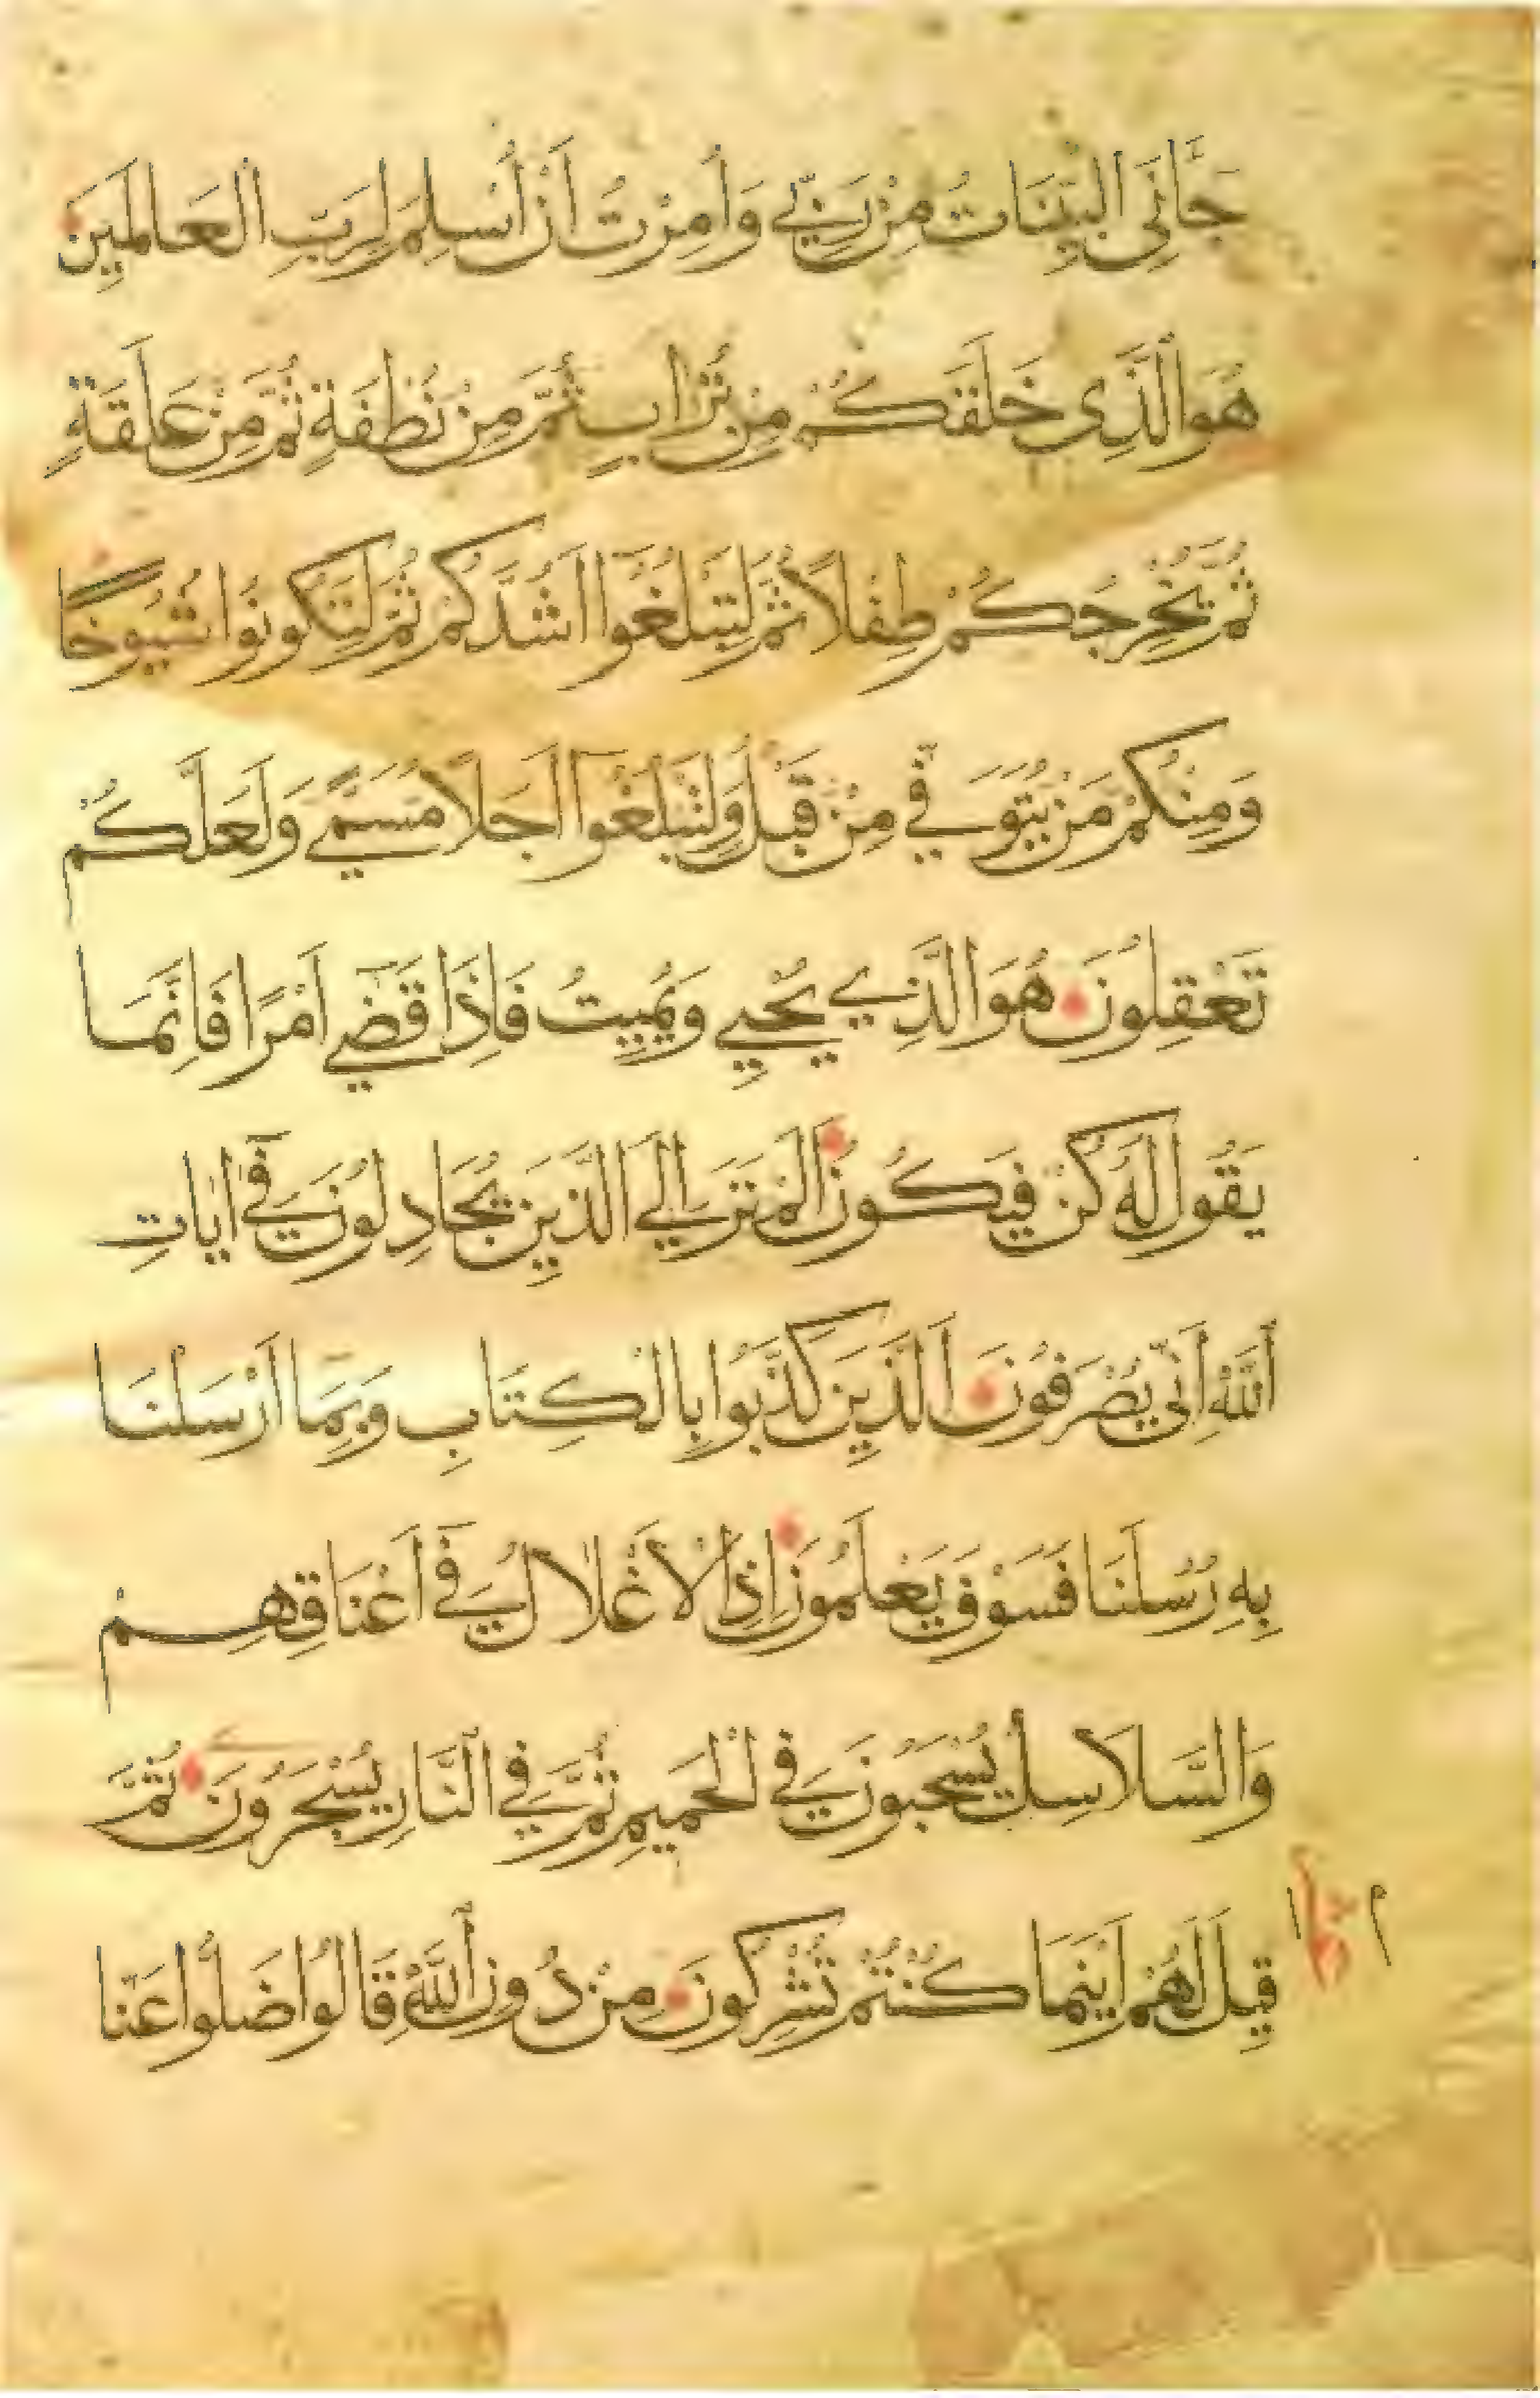 جَّانِيَ الْبَيِّنَاتُ مِنْ رَبِّي وَاُمِرْتُ اَنْ اُسْلِمَ لِرَبِّ الْعَالَمِينَ
هُوَ الَّذِى خَلَقَكُمْ مِنْ تُرَابٍ ثُمَّ مِنْ نُطْفَةٍ ثُمَّ مِنْ عَلَقَةٍ
ثُمَّ يُخْرِجُكُمْ طِفْلاً ثُمَّ لِتَبْلُغُوا اَشُدَّكُمْ ثُمَّ لِتَكُونُوا شُيُوخًا
وَمِنْكُمْ مَنْ يُتَوَفّي مِنْ قَبْلُ وَلِتَبْلُغُوآ اَجَلاً مُسَمًّي وَلَعَلَّكُمْ
تَعْقِلُونَ هُوَ الَّذِي يُحْيِي وَيُمِيتُ فَاِذَا قَضَي اَمْرًا فَاِنَّمَا
يَقُولُ لَهُ كُنْ فَيَكُونُ اَلَمْ تَرَ اِلَي الَّذِينَ يُجَادِلُونَ فِي اٰيَاتِ
اللّٰهِ اَنّي يُصْرَفُونَ اَلَّذِينَ كَذَّبُوا بِالْكِتَابِ وَبِمَا اَرْسَلْنَا
بِهِ رُسُلَنَا فَسَوْفَ يَعْلَمُونَ اِذِ الْاَغْلَالُ فِي اَعْنَاقِهِمْ
وَالسَّلَاسِلُ يُسْحَبُونَ فِي الْحَمِيمِ ثُمَّ فِي النَّارِ يُسْجَرُونَ ثُمَّ
قِيلَ لَهُمْ اَيْنَمَا كُنْتُمْ تُشْرِكُونَ مِنْ دُونِ اللّٰهِ قَالُوا ضَلُّوا عَنَّا